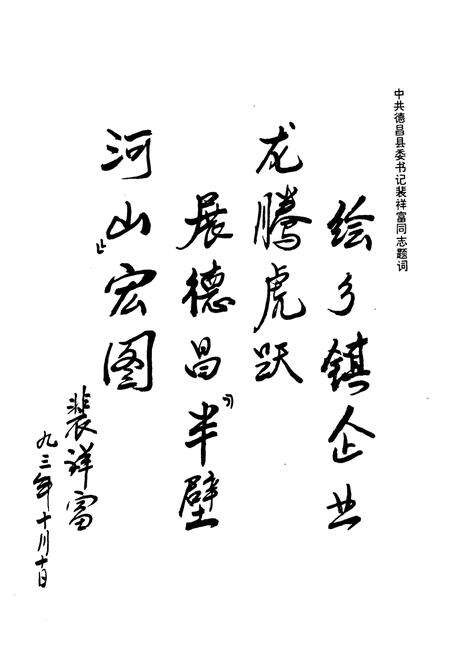 中共德昌县委书记裴祥富同志题词
绘乡镇企业
龙腾虎跃
展德昌半壁
河山宏图
裴祥富
九三年十月十日